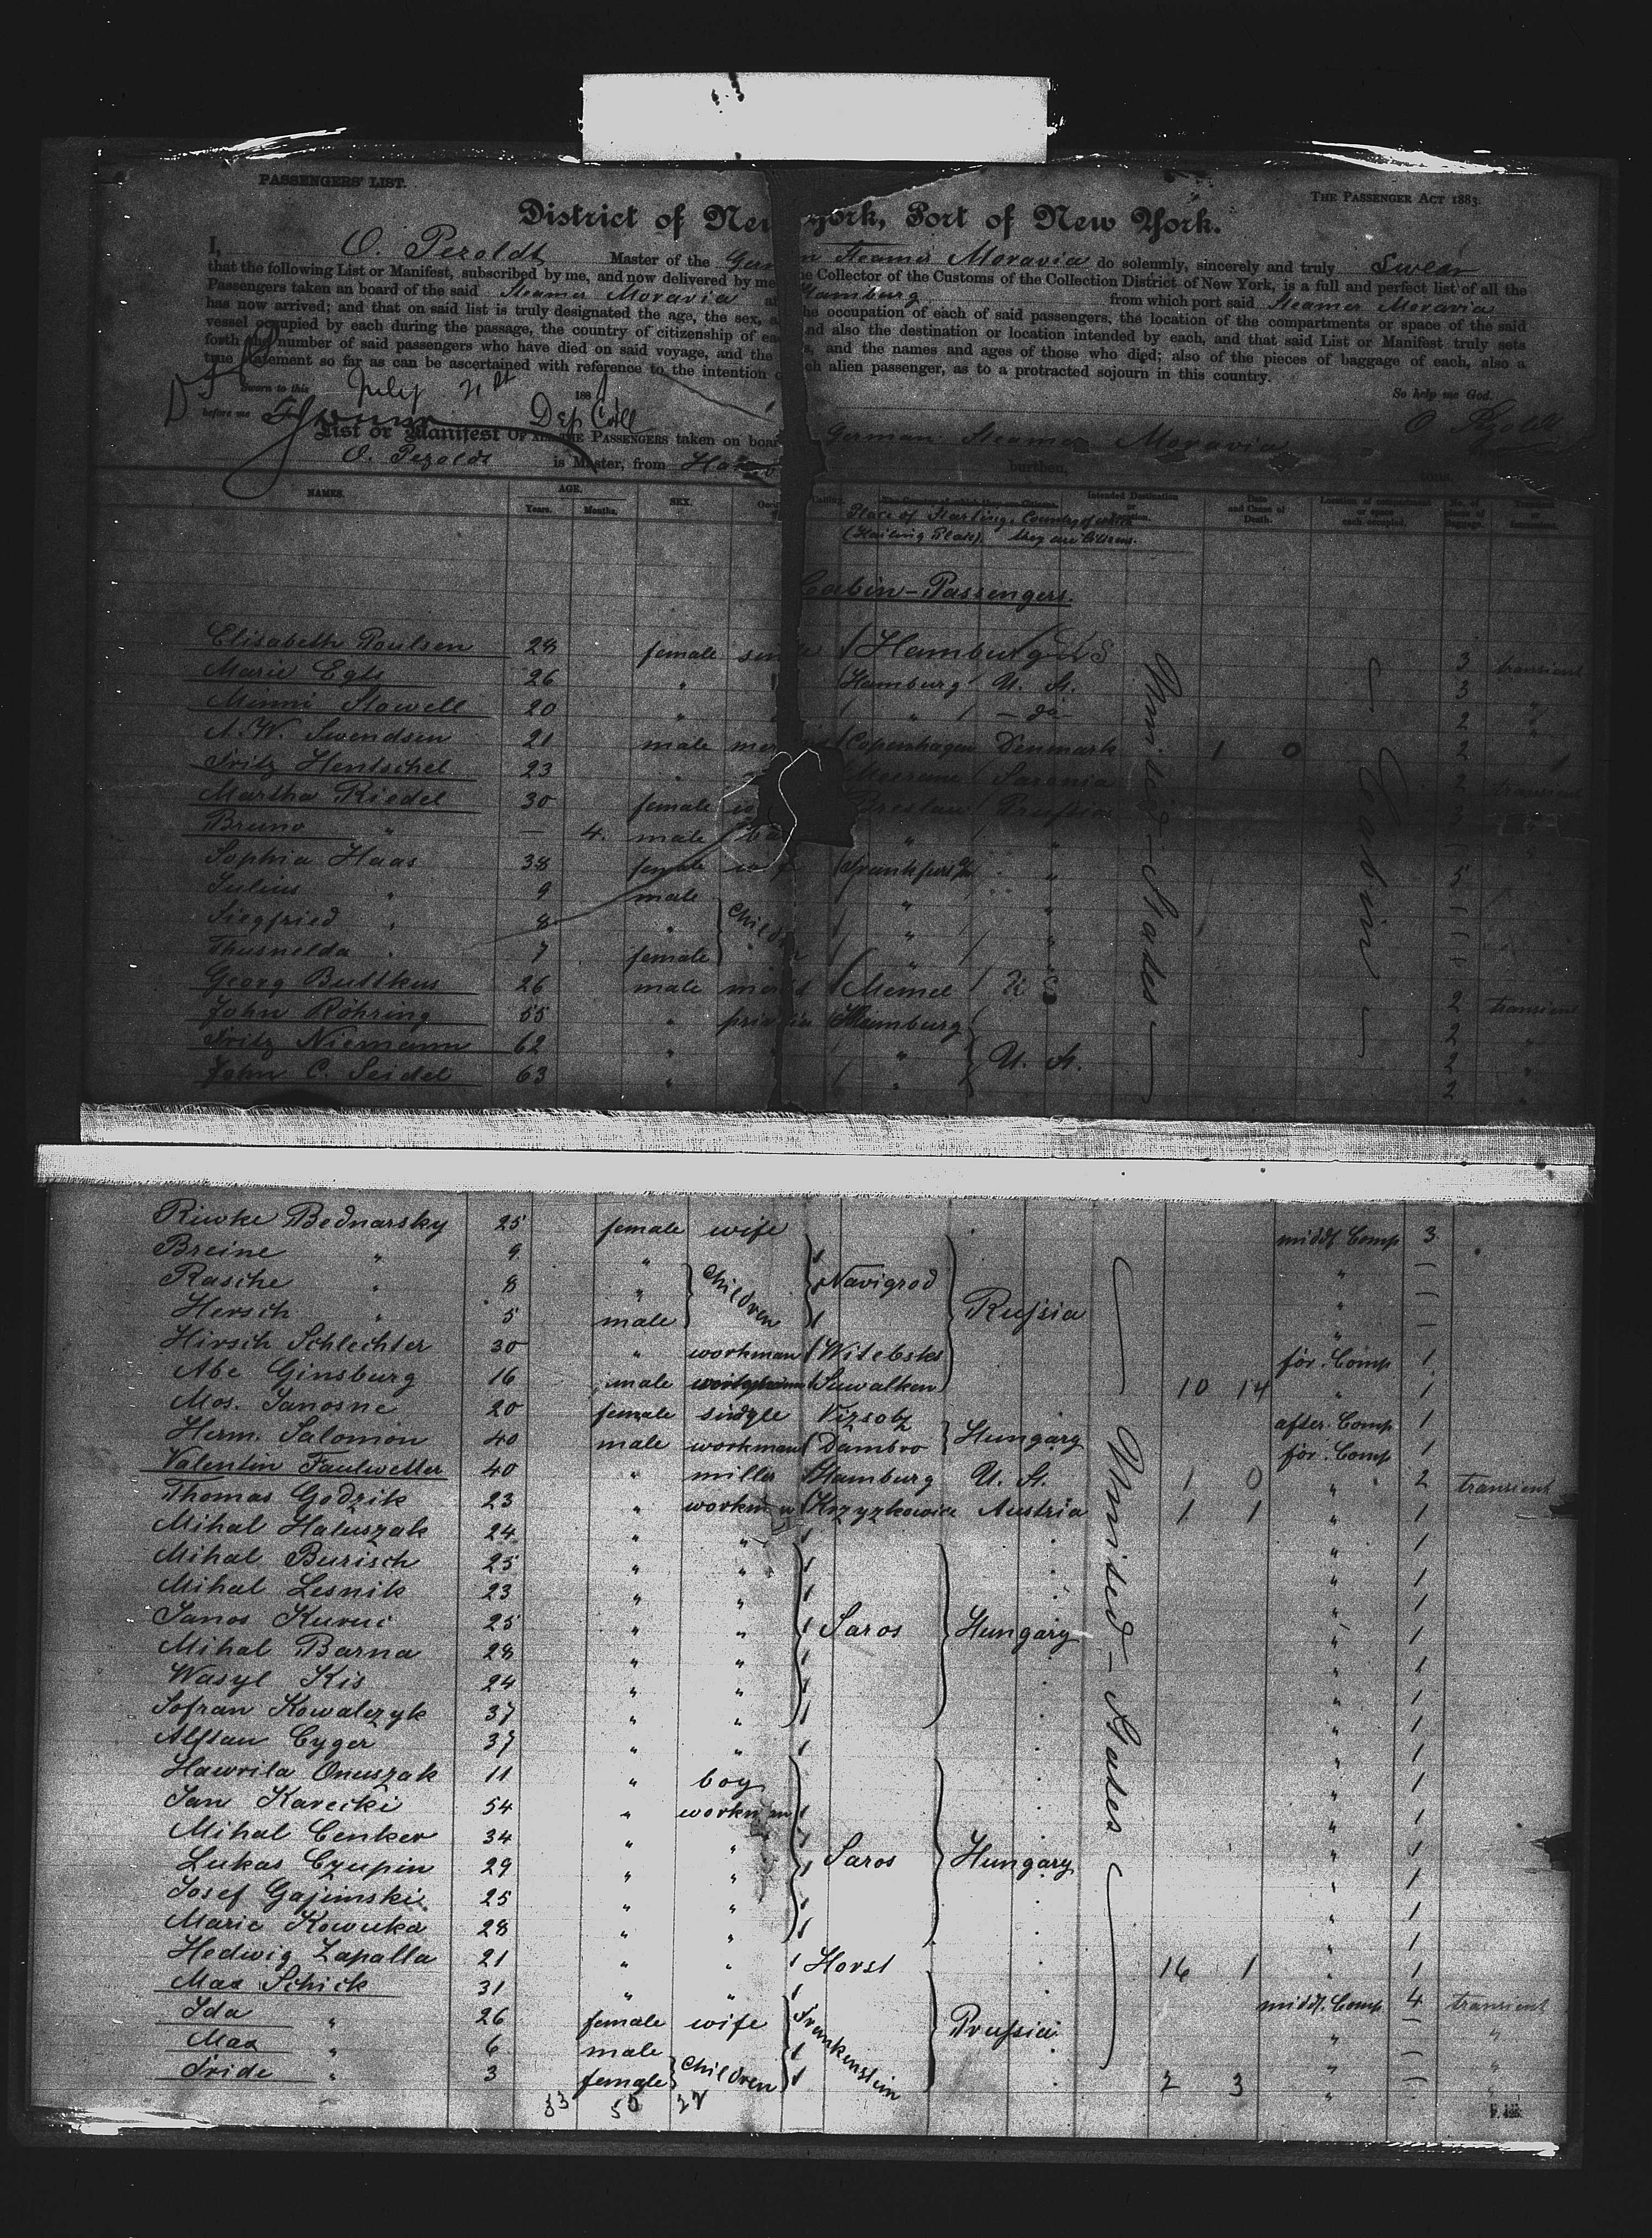 PASSENGERS' LIST.
THE PASSENGER ACT 1883.
District of New York, Port of New York.
I, O. Pezoldt Master of the German Steamer Moravia do solemnly, sincerely and truly Swear
that the following List or Manifest, subscribed by me, and now delivered by me the Collector of the Customs of the Collection District of New York, is a full and perfect list of all the
Passengers taken an board of the said Steamer Moravia at Hamburg from which port said Steamer Moravia
has now arrived; and that on said list is truly designated the age, the sex, the occupation of each of said passengers, the location of the compartments or space of the said
vessel occupied by each during the passage, the country of citizenship of and also the destination or location intended by each, and that said List or Manifest truly sets
forth the number of said passengers who have died on said voyage, and the and the names and ages of those who died; also of the pieces of baggage of each, also a
true statement so far as can be ascertained with reference to the intention of each alien passenger, as to a protracted sojourn in this country.
Sworn to this July 21st 188
So help me God.
before me Dep Coll
O Pezoldt
List or Manifest OF ALL THE PASSENGERS taken on board German Steamer Moravia
O. Pezoldt is Master, from burthen, tons
NAMES. AGE. Years. Months. SEX. The Country of which they are Citizens. Intended Destination or Location. Date and Cause of Death. Location of compartment or space each occupied. No. of pieces of Baggage.
Place of Starting. Country of which
(Hailing Place). they are Citizens.
Cabin-Passengers.
Elisabeth Poulsen 28 female single Hamburg U S 3 transient
Marie Egls 26 " Hamburg U. St. 3 "
Minni Stowell 20 " " — do — 2 "
A. W. Swendsen 21 male Copenhagen Denmark 1 0 2
Fritz Hentschel 23 " Meerane Saxonia 2 transient
Martha Riedel 30 female Breslau Prußia 3 "
Bruno " — 4. male " "
Sophia Haas 38 female Frankfurt " 5
Julius " 9 male " "
Siegfried " 8 " Children " "
Thusnelda " 7 female " "
Georg Buttkus 26 male Memel U S 2 transient
John Röhring 55 " Hamburg 2 "
Fritz Niemann 62 " " U. St. 2 "
John C. Seidel 63 " " 2 "
United-States
Cabin
Riwke Bednarsky 25 female wife midd. Comp 3 "
Breine " 9 " "
Rasche " 8 " Children Navigrod " —
Hersch " 5 male Rußia " —
Hirsch Schlechter 30 " workman Witebsk for. Comp 1
Abe Ginsburg 16 male Suwalken 10 14 " 1
Mos. Janosne 20 female single Vizsolz after. Comp 1
Herm. Salomon 40 male workman Dambro Hungary for. Comp 1
Valentin Faulwetter 40 " miller Hamburg U. St. 1 0 " 2 transient
Thomas Godzik 23 " workman Krzyzkowice Austria 1 1 " 1
Mihal Haluszak 24 " " " 1
Mihal Burisch 25 " " " 1
Mihal Lesnik 23 " " " 1
Janos Kurui 25 " " Saros Hungary " 1
Mihal Barna 28 " " " 1
Wasyl Kis 24 " " " 1
Sofran Kowalczyk 37 " " " 1
Alftan Cyger 37 " " " 1
Hawrila Onuszak 11 " boy " 1
Jan Karecki 54 " workman " 1
Mihal Cenker 34 " " " 1
Lukas Czupin 29 " " Saros Hungary " 1
Josef Gajimski 25 " " " 1
Marie Kowuka 28 " " " 1
Hedwig Zapalla 21 " " Horst 16 1 " 1
Max Schick 31 " " midd. Comp 4 transient
Ida " 26 female wife Frankenstein Prußia " — "
Max " 6 male " — "
Fride " 3 female Children 2 3 " — "
United-States
33 50 27